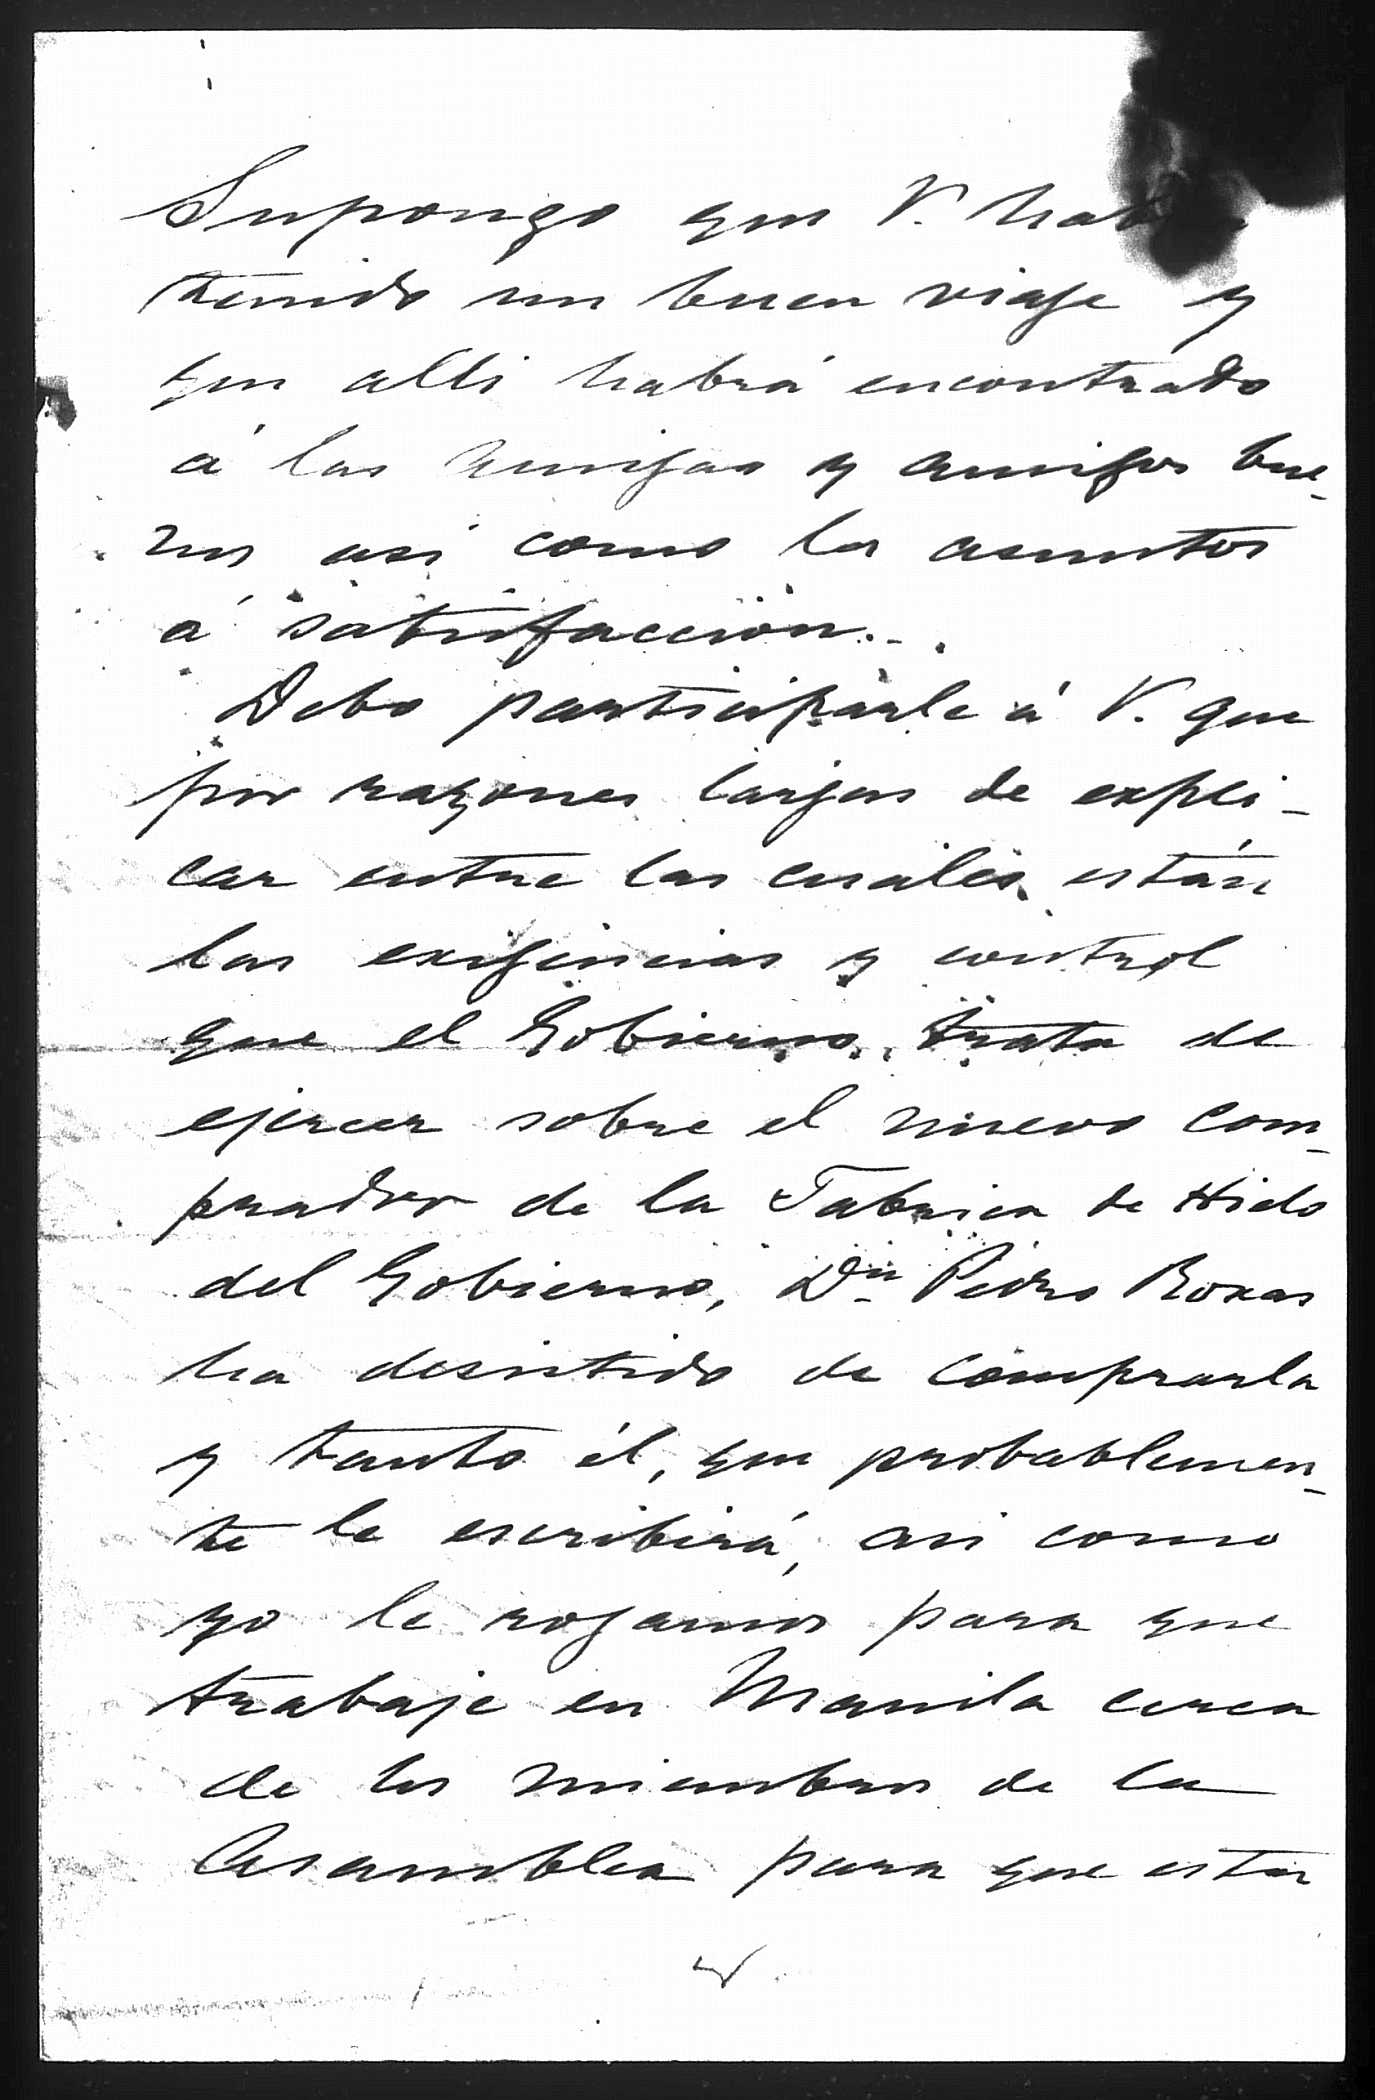 Supongo que V. habrá
tenido un buen viaje y
que alli habrá encontrado
á las amigas y amigos bue-
nos asi como los asuntos
á satisfaccion.-
Debo participarle á V. que
por razones largas de expli-
car entre las cuales están
las exigencias y control
que el Gobierno trata de
ejercer sobre el nuevo com-
prador de la Fabrica de Hielo
del Gobierno, Dn Pedro Roxas
ha desistido de comprarla
y tanto él, que probablemen-
te le escribirá, asi como
yo le rogamos para que
trabaje en Manila cerca
de los miembros de la
Asamblea para que estos